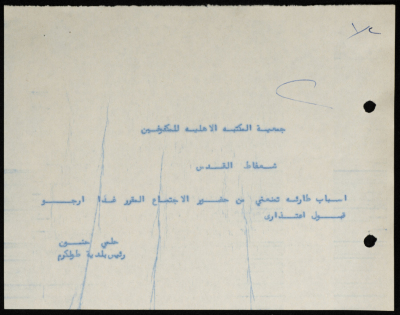 جمعية المكتبه الاهليه للمكفوفين
شعفاط القدس
اسباب طارئه تمنعني من حضور الاجتماع المقرر غدا ارجو
قبول اعتذاري
حلمي حنون
رئيس بلدية طولكرم